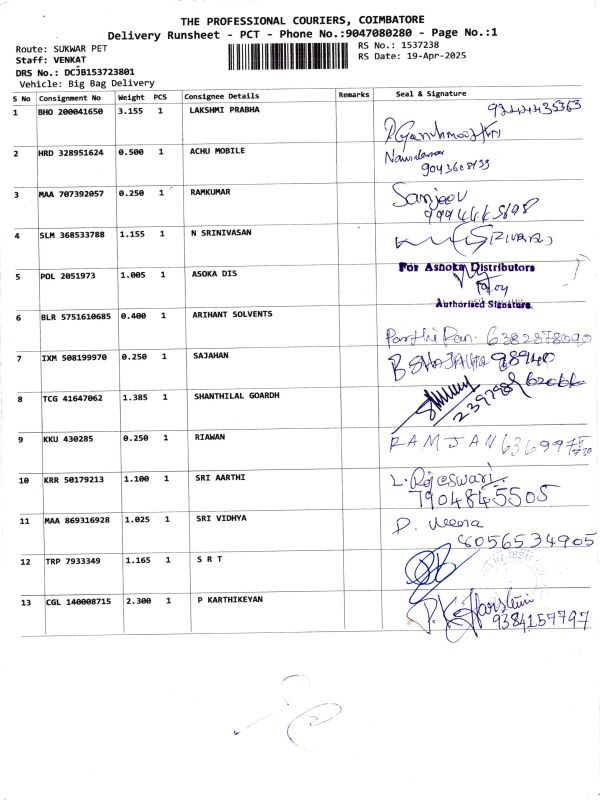 THE PROFESSIONAL COURIERS, COIMBATORE
Delivery Runsheet - PCT - Phone No.:9047080280 - Page No.:1
Route: SUKWAR PET
RS No.: 1537238
Staff: VENKAT
RS Date: 19-Apr-2025
DRS No.: DCJB153723801
Vehicle: Big Bag Delivery
S No Consignment No Weight PCS Consignee Details Remarks Seal & Signature
1 BHO 200041650 3.155 1 LAKSHMI PRABHA
2 HRD 328951624 0.500 1 ACHU MOBILE
3 MAA 707392057 0.250 1 RAMKUMAR Sanjeev
4 SLM 368533788 1.155 1 N SRINIVASAN
5 POL 2051973 1.005 1 ASOKA DIS For Ashoka Distributors
Authorised Signature
6 BLR 5751610685 0.400 1 ARIHANT SOLVENTS
7 IXM 508199970 0.250 1 SAJAHAN
8 TCG 41647062 1.385 1 SHANTHILAL GOARDH
9 KKU 430285 0.250 1 RIAWAN RAMJAN
10 KRR 50179213 1.100 1 SRI AARTHI L. Rajeswari
7904845505
11 MAA 869316928 1.025 1 SRI VIDHYA D. Meena
8056534905
12 TRP 7933349 1.165 1 S R T
13 CGL 140008715 2.300 1 P KARTHIKEYAN
9384157797